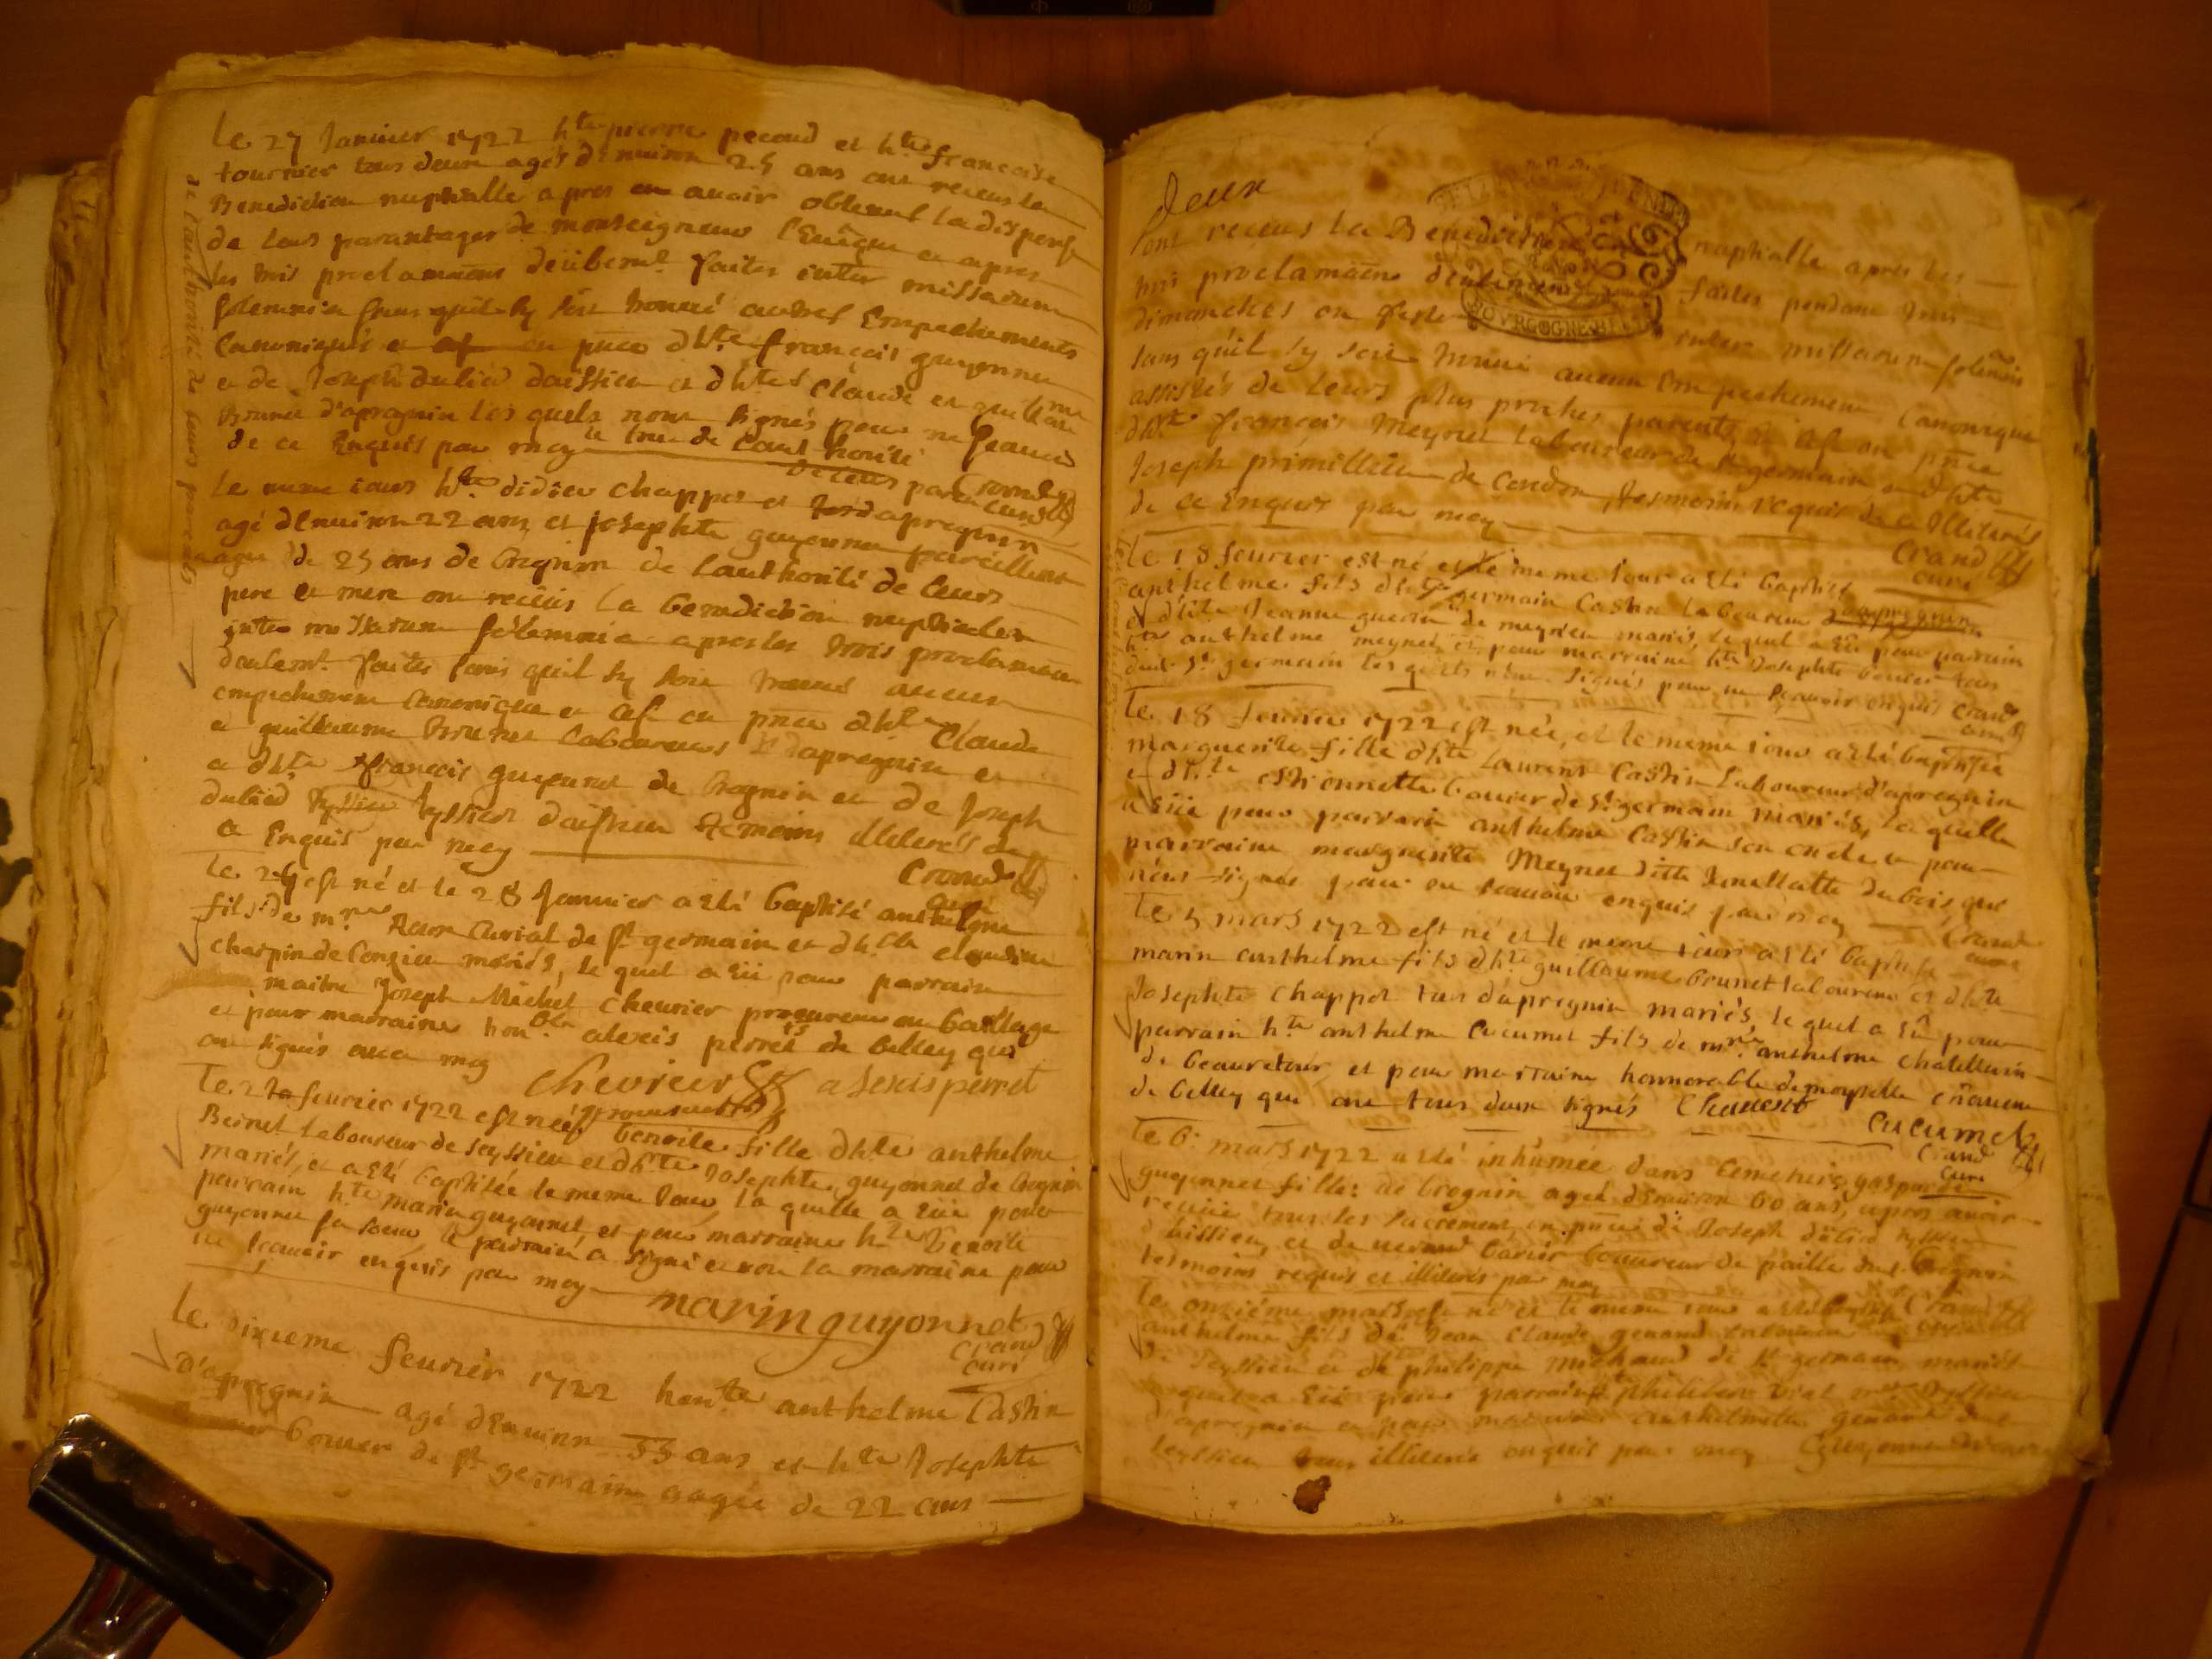 Le 27 Janvier 1722 hte pierre pecoud et hte francoise
tournier tous deux agés denviron 25 ans ont receus la
Benediction nuptialle apres en avoir obtenus la dispense
de leurs parantages de monseigneur l'Evêque et apres
les trois proclamaons deüibemt faites inter missarum
solemnia sans quil sy soit trouvé aucuns Empechements
Canoniques et en pnce dhte françois guyonnet
et de Joseph dulied daissieu et dhtes Claude et guillaume
Brunet d'apregnin les quels nont signés pour ne sçavoir
de ce Enquis par moy
de l'authorité de leurs parents
Crand curé
Le meme iour hte didier chappot et dapregnin
agé denviron 22 ans et josephte guyonnet pareillemt
agée de 25 ans de brognin de lauthorité de leurs
pere et mere ont recüis la benediction nuptialle
inter missarum sollemnia apres les trois proclamaons
deulemt faites sans quil sy soit trouvé aucun
empechement canonique et en pnce dhte Claude
et guillaume Brunet laboureurs dapregnin et
a dhte françois guyonnet de brognin et de Joseph
dulied tyssier daissieu temoins illiterés de
ce Enquis par moy
Crand curé
Le 26 est né et le 28 Janvier a esté baptisé anthelme
fils de mre Curial de st germain et dhble claudine
charpin de Conzieu mariés, le quel a eüe pour parrain
maitre Joseph Michel chevrier procureur au bailliage
et pour marraine honble alexis perret de belley qui
ont signés avec moy
chevrier alexis perret
Le fevrier 1722 est née
benoite fille dhte anthelme
Beinet laboureur de seyssieu et dhte Josephte guyonnet de brognin
mariés, et a esté baptisée le meme Jour, la quelle a eüe pour
parrain hte marin guyonnet, et pour marraine hte Benoite
guyonnet sa soeur, le parrain a signé et non la marraine pour
ne sçavoir enquis par moy
marin guyonnet
Crand Curé
Le dixieme fevrier 1722 honte anthelme Castin
d'apregnin agé denviron 33 ans et hte Josephte
bouver de st germain aagée de 22 ans
Deux
ont receus la Benediction nuptialle apres les
trois proclamaons deulement faites pendant trois
dimanches ou festes inter missarum solemnia
sans quil sy soit trouvé aucun empechement Canonique
assistés de leurs plus proches parents et en pnce
dhte françois Meynet laboureur de st germain et dhte
Joseph primillieu de Cendon tesmoins requis illiterés
de ce Enquis par moy
Crand curé
Le 18 fevrier est né et le meme Jour a esté baptisé
anthelme fils dhte germain Castin laboureur dapregnin
et dhte Jeanne guerin de meyrieu mariés, le quel a eüe pour parrain
hte anthelme meynet et pour marraine hte Josephte bouver tous
dud. st germain les quels n'ont signés pour ne sçavoir enquis Crand curé
Le 18 fevrier 1722 est née, et le meme iour a esté baptisée
marguerite fille dhte Laurent Castin Laboureur d'apregnin
et dhte Estionnette bouver de st germain mariés, la quelle
a eüe pour parrain anthelme Castin son oncle et pour
marraine marguerite Meynet ditte dubois, qui
n'ont signés pour ne scavoir enquis par moy
Crand curé
Le 5 mars 1722 est né et le meme iour a esté baptisé
marin anthelme fils dhte guillaume brunet laboureur et dhte
Josephte chappot tous dapregnin mariés, le quel a eü pour
parrain hte anthelme Cucumet fils de mre anthelme chatellain
de beauretour, et pour marraine honnorable demoyselle
de belley qui ont tous deux signés
Cucumet
Crand Curé
Le 6. mars 1722 a esté inhumée dans Cemetiere gasparde
guyonnet fille: de brognin agée denviron 60 ans, apres avoir
recüe tous les sacrements, en pnce de Joseph dulied tyssier
daissieu, et de barier couvreur de paille dud. brognin
tesmoins requis et illiterés par moy
Le onzieme mars est né et le meme iour a esté baptisé
anthelme fils de Jean Claude genand laboureur
de seyssieu et dhte philippe michaud de st germain mariés
le quel a eüe pour parrain philibert
d'apregnin et pour marraine anthelmette genand dud.
seyssieu tous illiterés enquis par moy Guyonnet